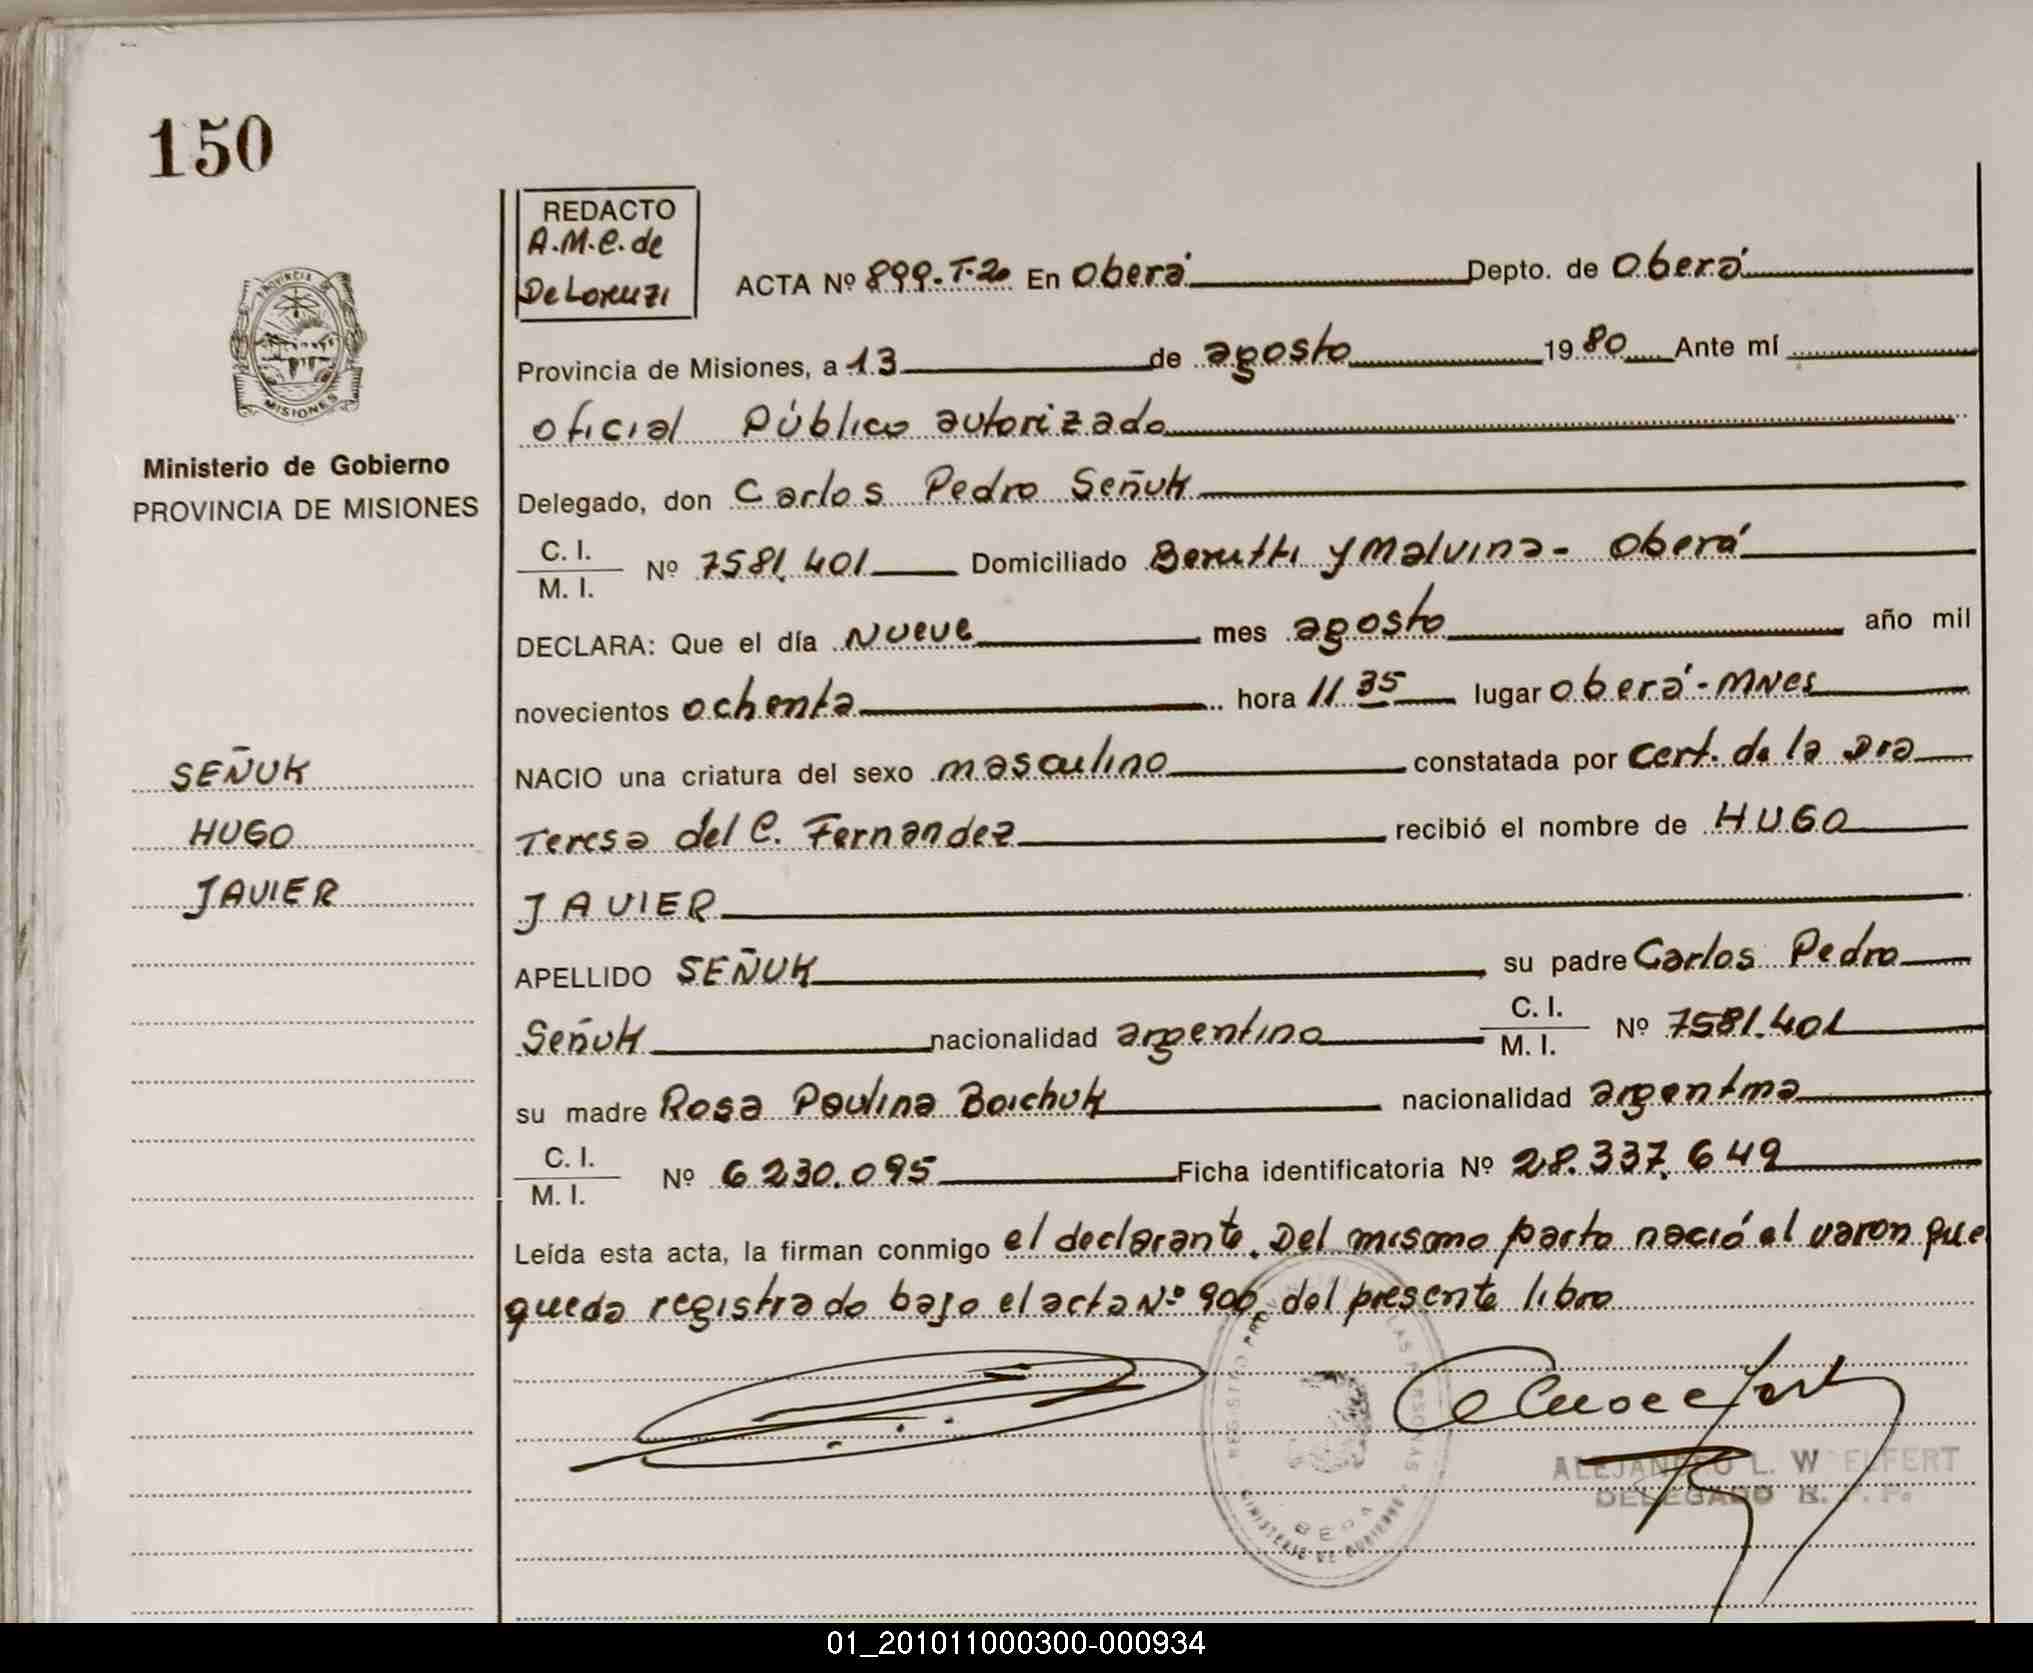 150
REDACTO
A.M.C. de
De Lorenzi
ACTA Nº 899. T-20 En Oberá Depto. de Oberá
Provincia de Misiones, a 13 de agosto 1980 Ante mí
Oficial Público autorizado
Ministerio de Gobierno
PROVINCIA DE MISIONES
Delegado, don Carlos Pedro Señuk
C. I.
M. I. Nº 7581.401 Domiciliado Berutti y Malvina - Oberá
DECLARA: Que el día Nueve mes agosto año mil
novecientos ochenta hora 11 35 lugar Oberá - MNes
SEÑUK
NACIO una criatura del sexo masculino constatada por cert. de la Dra
HUGO
Teresa del C. Fernandez recibió el nombre de HUGO
JAVIER
JAVIER
APELLIDO SEÑUK su padre Carlos Pedro
Señuk nacionalidad argentino C. I. M. I. Nº 7581.401
su madre Rosa Paulina Boichuk nacionalidad argentina
C. I.
M. I. Nº 6 230.095 Ficha identificatoria Nº 28.337.649
Leída esta acta, la firman conmigo el declarante. Del mismo parto nació el varon que
queda registrado bajo el acta Nº 900, del presente libro
ALEJANDRO L. WOELFERT
DELEGADO R. P. P.
PROVINCIA
MISIONES
REGISTRO PROVINCIAL DE LAS PERSONAS
MINISTERIO DE GOBIERNO
OBERA
01_201011000300-000934